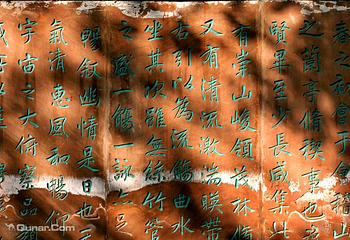 春之初會于會
之蘭亭脩禊事也
賢畢至少長咸集
有崇山峻領茂林脩
又有清流激湍暎帶
右引以為流觴曲水
坐其次雖無絲竹管
之盛一觴一詠亦足
暢敘幽情是日也
氣清惠風和暢仰
宇宙之大俯察品
Qunar.Com